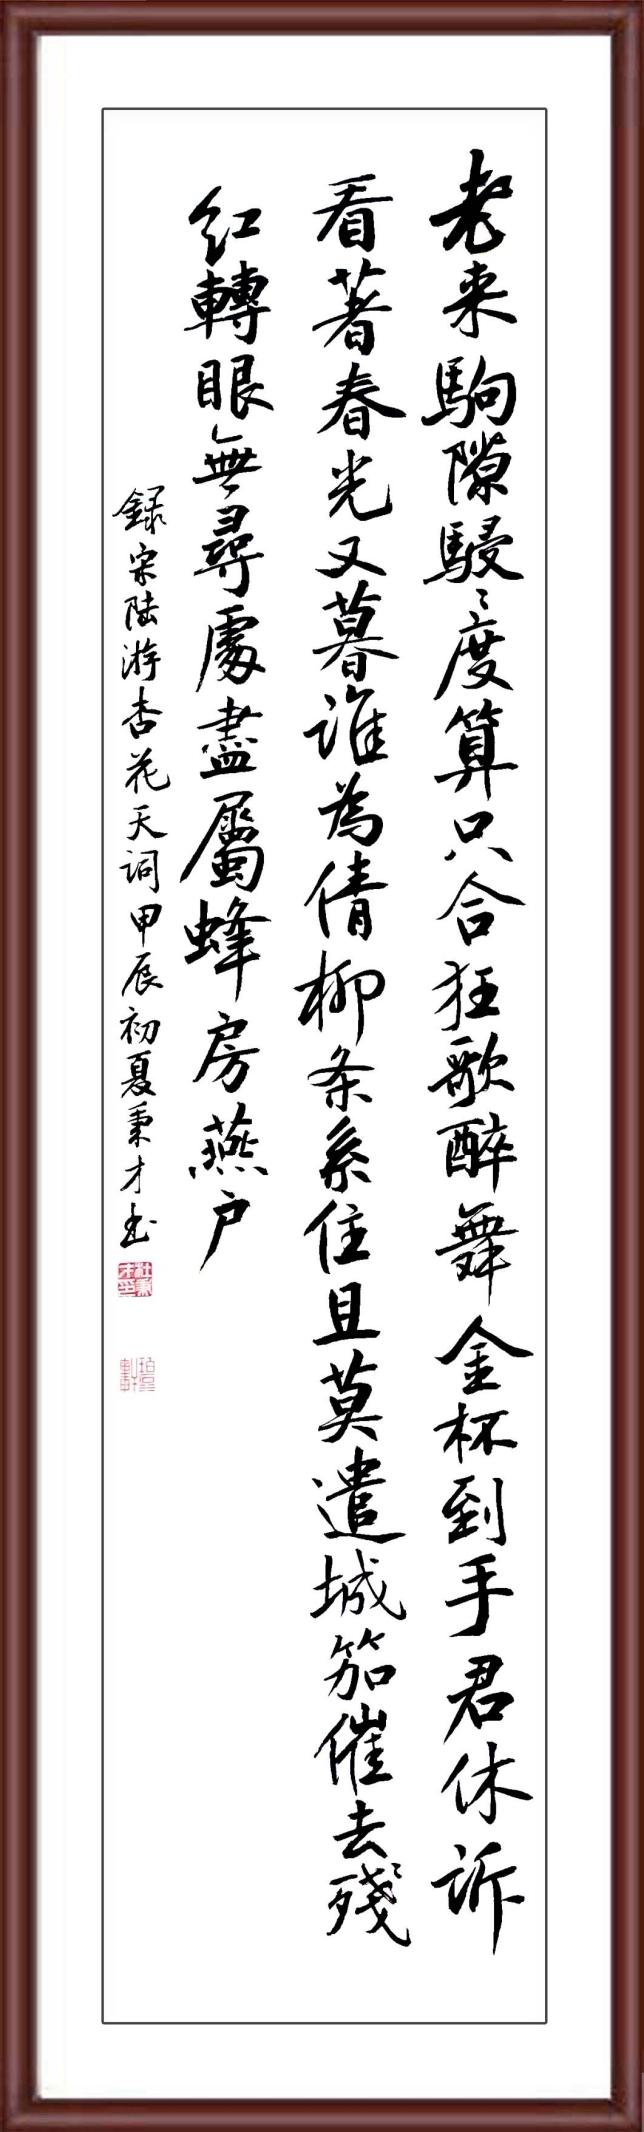 老来駒隙駸〻度算只合狂歌醉舞金杯到手君休訴
看著春光又暮誰為倩柳条系住且莫遣城笳催去殘
紅轉眼無尋處盡屬蜂房燕户
録宋陆游杏花天词甲辰初夏秉才书
杜秉才印